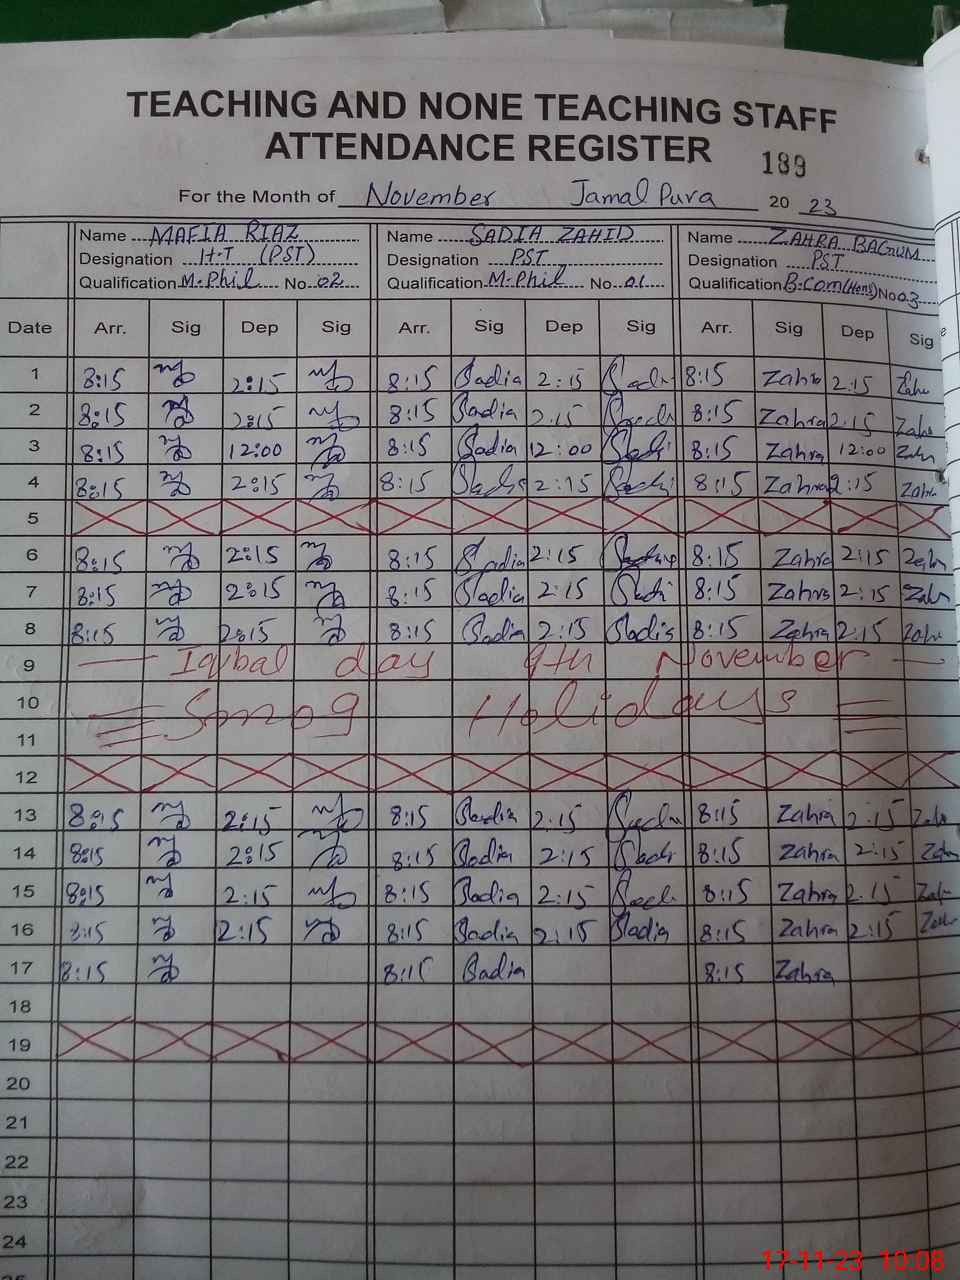 TEACHING AND NONE TEACHING STAFF
ATTENDANCE REGISTER
189
For the Month of November Jamal Pura 20 23
Name MAFIA RIAZ Name SADIA ZAHID Name ZAHRA BAGUM
Designation H.T (PST) Designation PST Designation PST
Qualification M.Phil No. 02 Qualification M.Phil No. 01 Qualification B.Com (Hons) No 03
Date Arr. Sig Dep Sig Arr. Sig Dep Sig Arr. Sig Dep Sig
1 8:15 2:15 8:15 Sadia 2:15 8:15 Zahra 2:15 Zahra
2 8:15 2:15 8:15 Sadia 2:15 8:15 Zahra 2:15 Zahra
3 8:15 12:00 8:15 Sadia 12:00 8:15 Zahra 12:00 Zahra
4 8:15 2:15 8:15 2:15 8:15 Zahra 2:15 Zahra
5
6 8:15 2:15 8:15 Sadia 2:15 8:15 Zahra 2:15 Zahra
7 8:15 2:15 8:15 Sadia 2:15 8:15 Zahra 2:15 Zahra
8 8:15 2:15 8:15 Sadia 2:15 Sadia 8:15 Zahra 2:15 Zahra
9 Iqbal day 9th November
10 Smog Holidays
11
12
13 8:15 2:15 8:15 Sadia 2:15 8:15 Zahra 2:15 Zahra
14 8:15 2:15 8:15 Sadia 2:15 8:15 Zahra 2:15 Zahra
15 8:15 2:15 8:15 Sadia 2:15 8:15 Zahra 2:15 Zahra
16 8:15 2:15 8:15 Sadia 2:15 Sadia 8:15 Zahra 2:15 Zahra
17 8:15 8:15 Sadia 8:15 Zahra
18
19
20
21
22
23
24
17-11-23 10:08